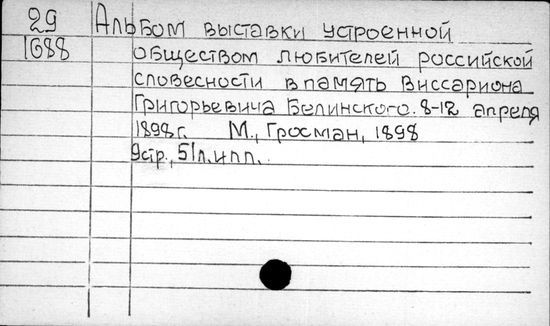 29 Альбом выставки устроенной
1688 обществом любителей российской
словесности в память Виссариона
Григорьевича Белинского. 8-12 апреля
1898г. М., Гросман, 1898
9стр., 51л.илл.